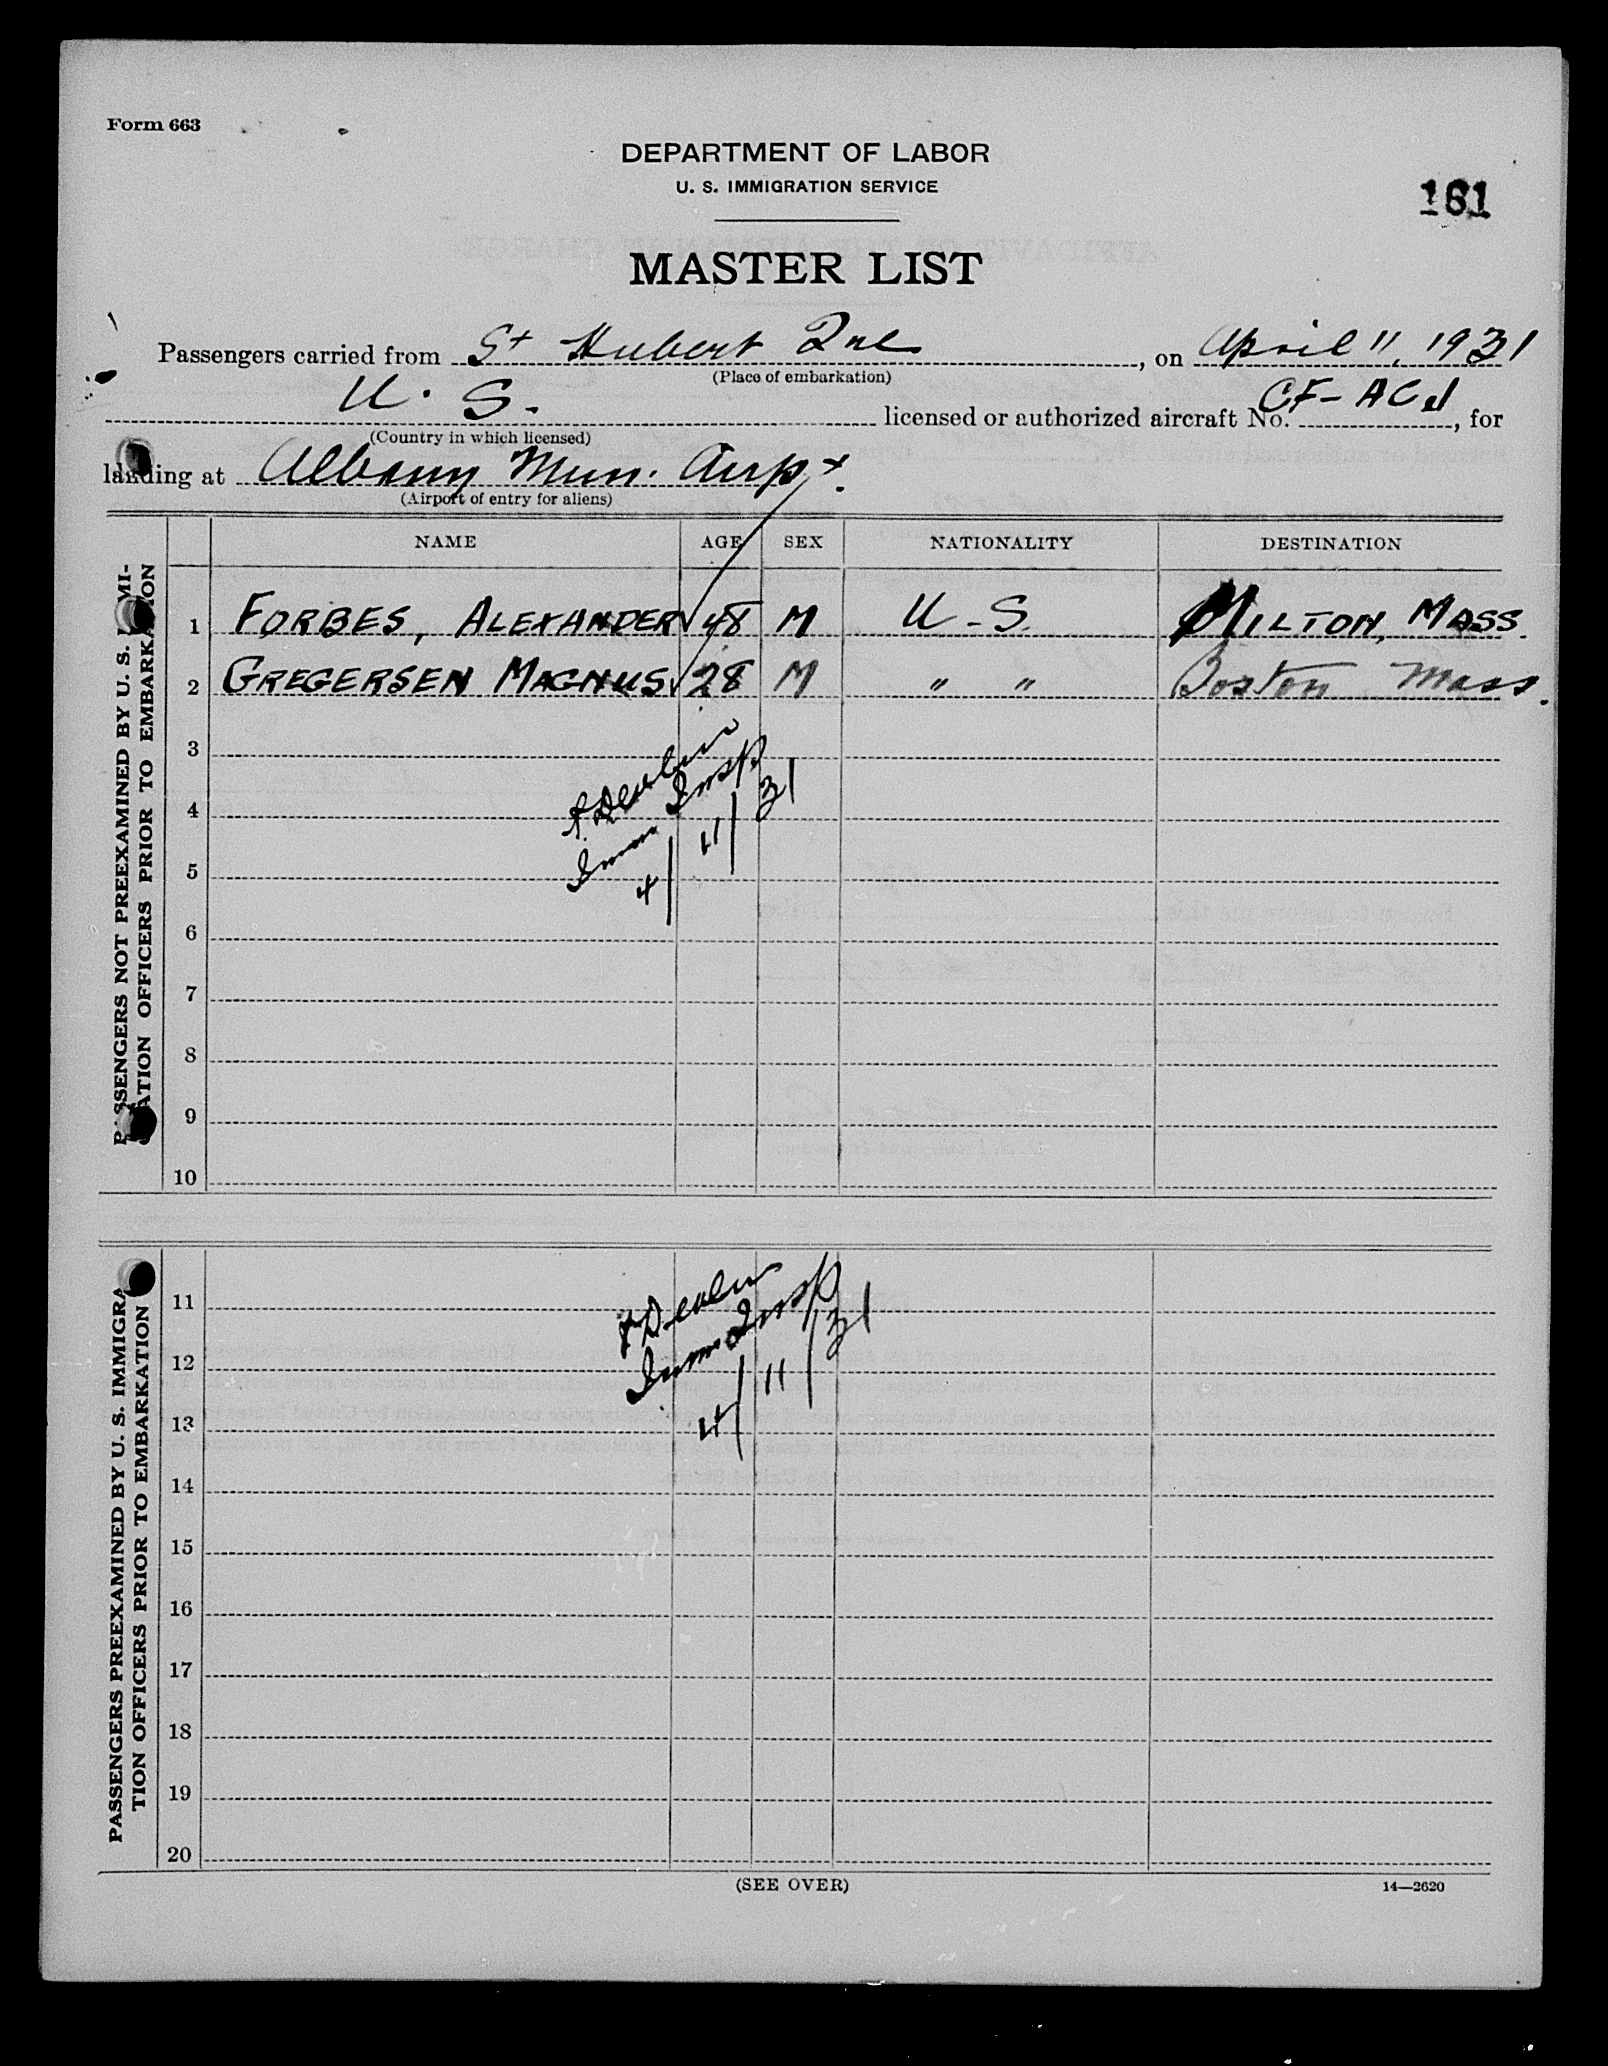 Form 663
DEPARTMENT OF LABOR
U. S. IMMIGRATION SERVICE
161
MASTER LIST
Passengers carried from St Hubert Que, on April 11, 1931
(Place of embarkation)
U. S. licensed or authorized aircraft No. CF-AC, for
(Country in which licensed)
landing at Albany Mun. Airpt.
(Airport of entry for aliens)
NAME AGE SEX NATIONALITY DESTINATION
PASSENGERS NOT PREEXAMINED BY U. S. IMMI-
GRATION OFFICERS PRIOR TO EMBARKATION
1 FORBES, ALEXANDER 48 M U-S. MILTON, MASS.
2 GREGERSEN MAGNUS 28 M " " Boston Mass.
3
Imm Insp
4
4/11/31
5
6
7
8
9
10
PASSENGERS PREEXAMINED BY U. S. IMMIGRA-
TION OFFICERS PRIOR TO EMBARKATION
11
Imm Insp
12
4/11/31
13
14
15
16
17
18
19
20
(SEE OVER)
14—2620